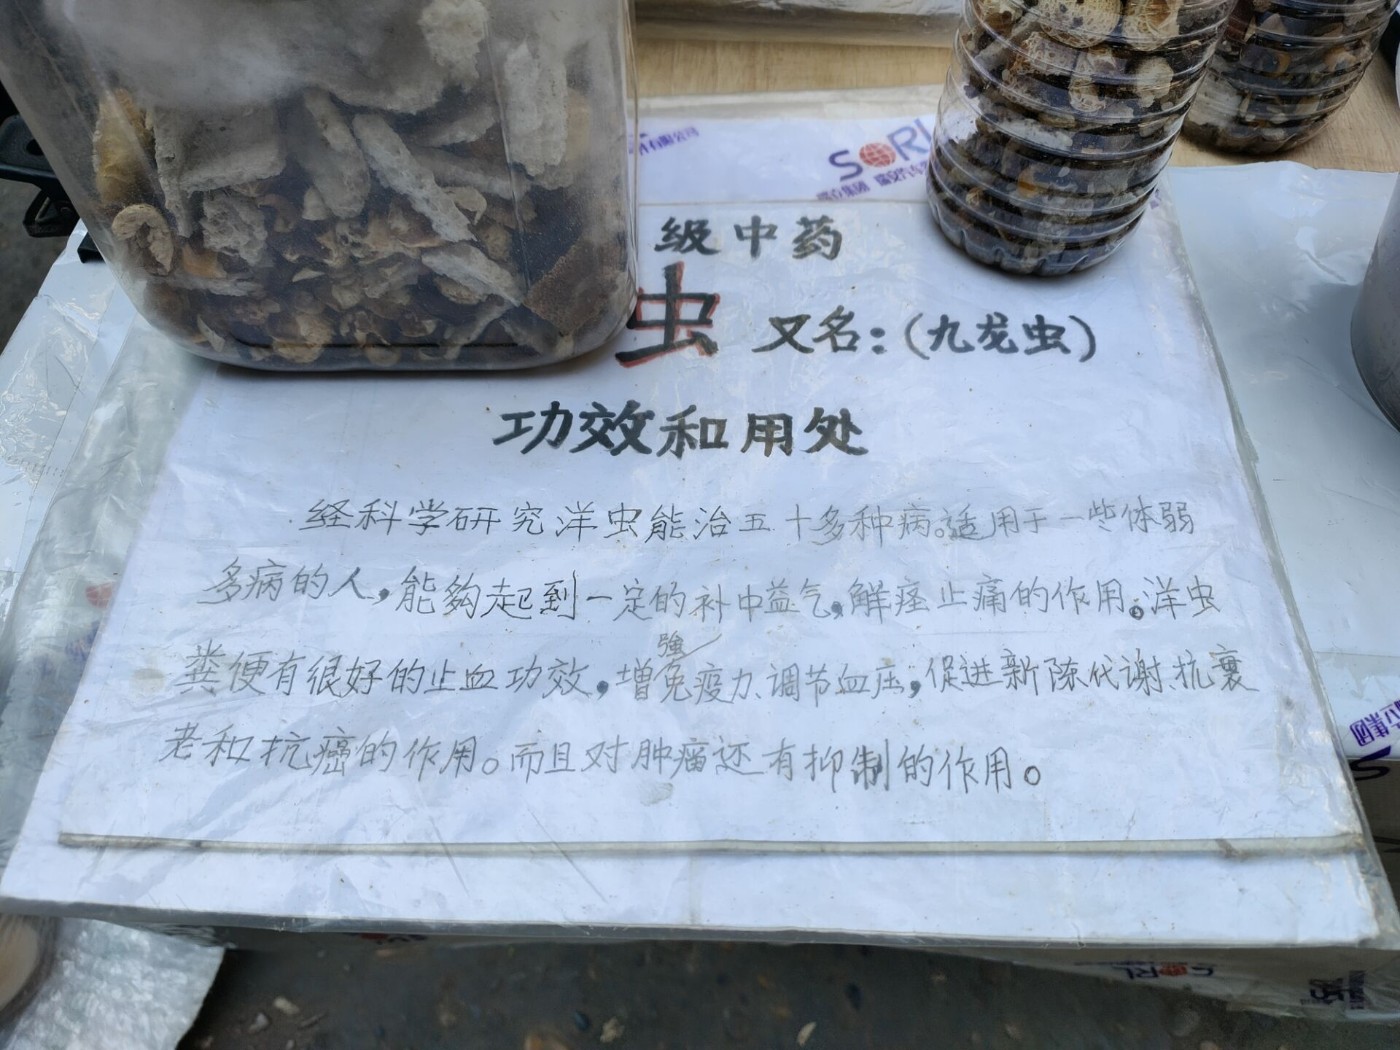 SORL
级中药
虫 又名：(九龙虫)
功效和用处
经科学研究洋虫能治五十多种病。适用于一些体弱
多病的人，能够起到一定的补中益气，解痉止痛的作用。洋虫
粪便有很好的止血功效，增强免疫力、调节血压，促进新陈代谢、抗衰
老和抗癌的作用。而且对肿瘤还有抑制的作用。